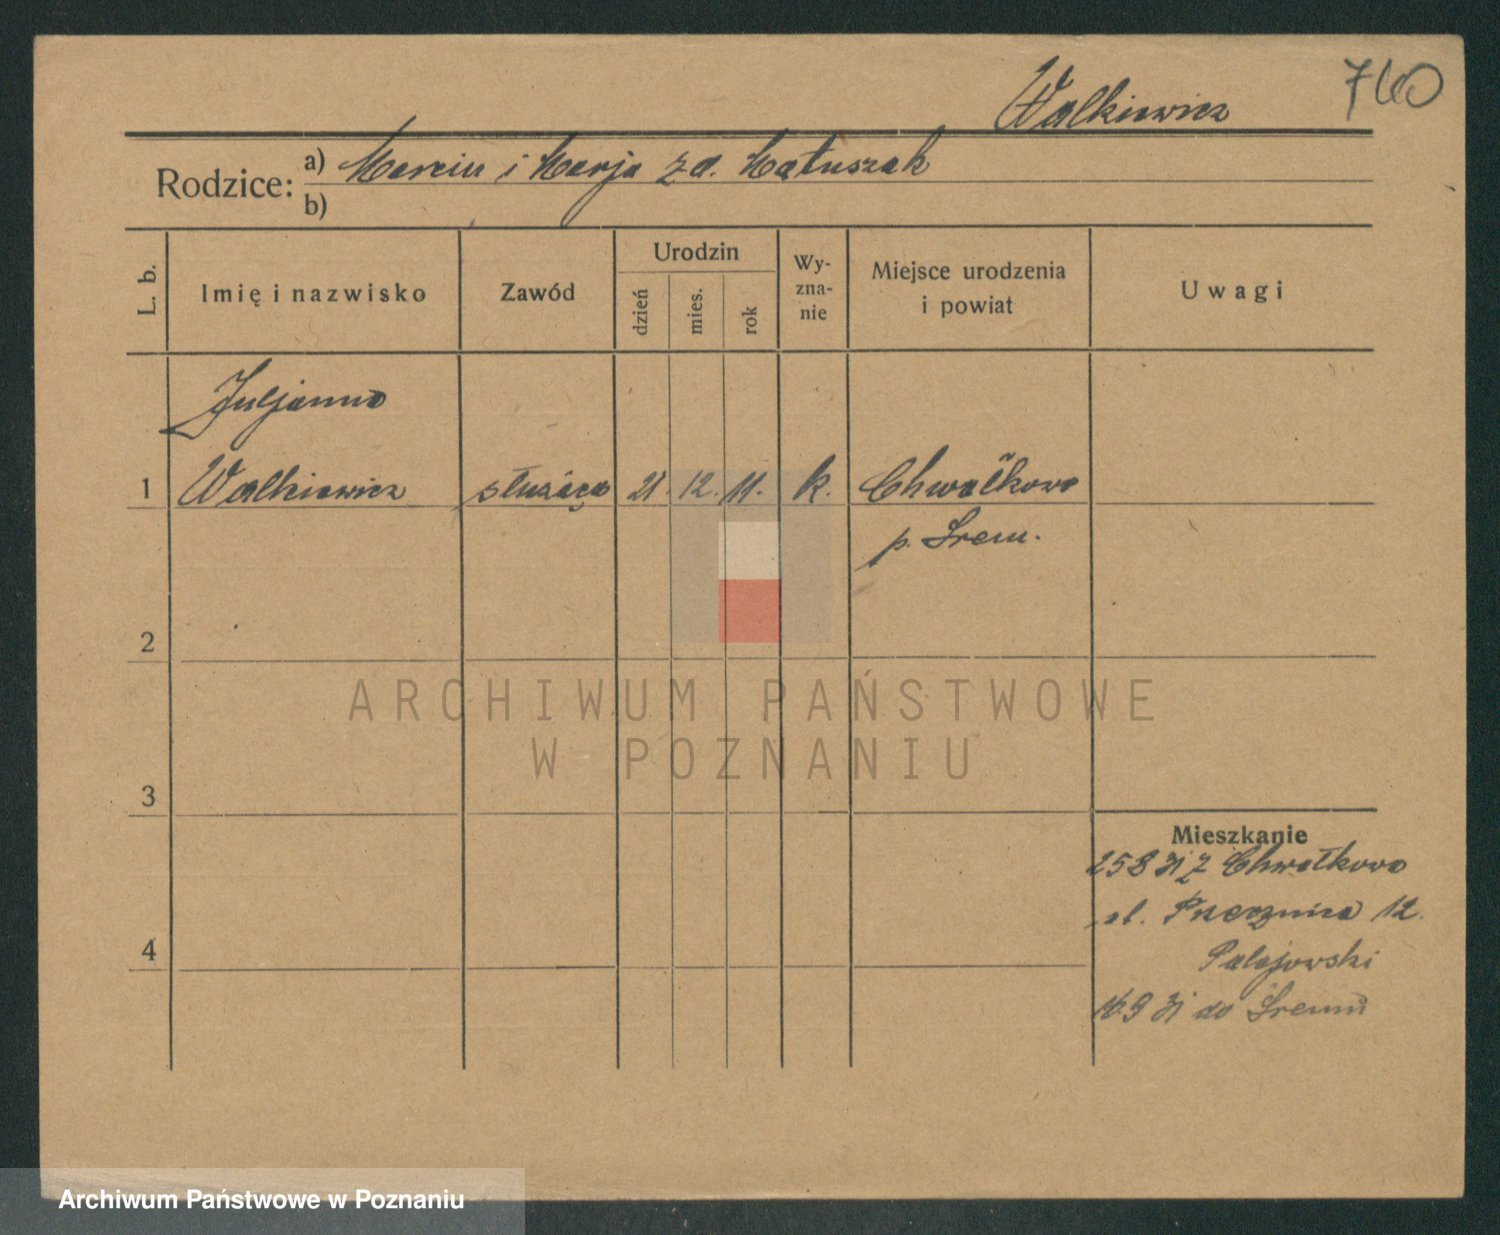 Walkiewicz
760
Rodzice:
a) Marcin i Marja zd. Matuszak
b)
L. b.
Imię i nazwisko
Zawód
Urodzin
dzień
mies.
rok
Wy-
zna-
nie
Miejsce urodzenia
i powiat
Uwagi
Juljanna
1 Walkiewicz służąca 21. 12. 11. k. Chwałkowo
p. Śrem.
2
3
4
Mieszkanie
25 8 31 z Chwałkowo
ul. 12.
16 9 31 do Śremu
ARCHIWUM PAŃSTWOWE
W POZNANIU
Archiwum Państwowe w Poznaniu